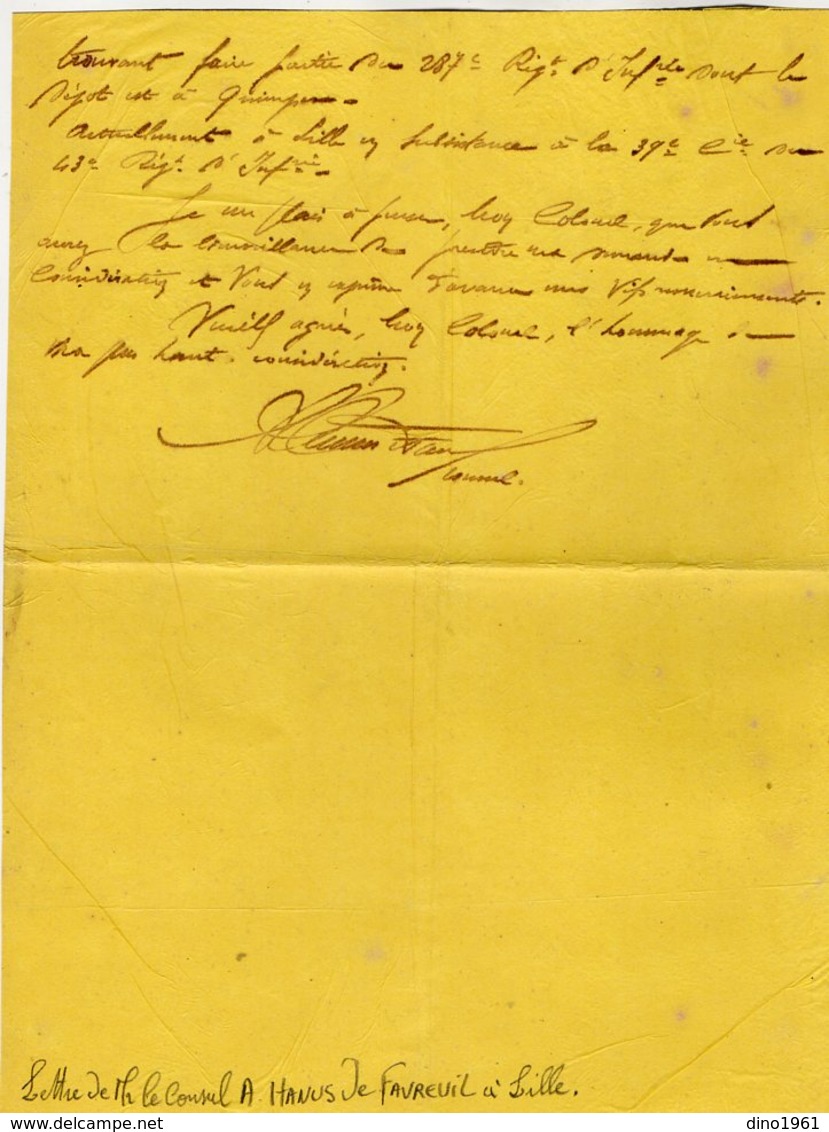 trouvant faire partie du 287e Régt. d'Infrie dont le
Dépôt est à Quimper.
Actuellement à Lille en subsistance à la 39e Cie du
43e Régt. d'Infrie.
Je me plais à penser, mon Colonel, que Vous
aurez la bienveillance de prendre ma demande en
considération et Vous en exprime d'avance mes vifs remerciements.
Veuillez agréer, mon Colonel, l'hommage de
ma plus haute considération.
Consul.
Lettre de Mr le Consul A. HANUS De FAVREUIL à Lille.
dino1961